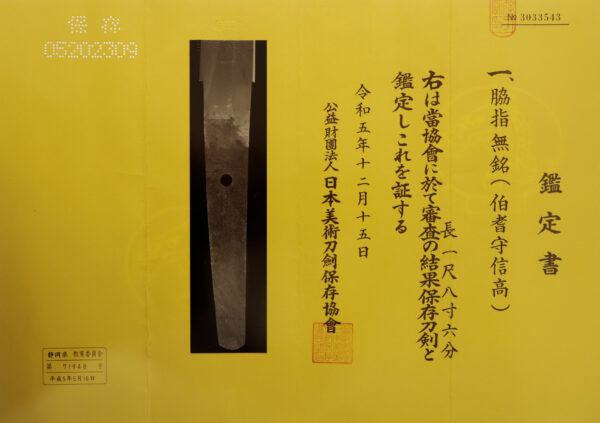 № 3033543
鑑定書
一、脇指 無銘(伯耆守信高)
長一尺八寸六分
右は當協會に於て審査の結果保存刀剣と
鑑定しこれを証する
令和五年十二月十五日
公益財團法人日本美術刀劍保存協會
保存
05202309
静岡県 教育委員会
平成5年5月10日